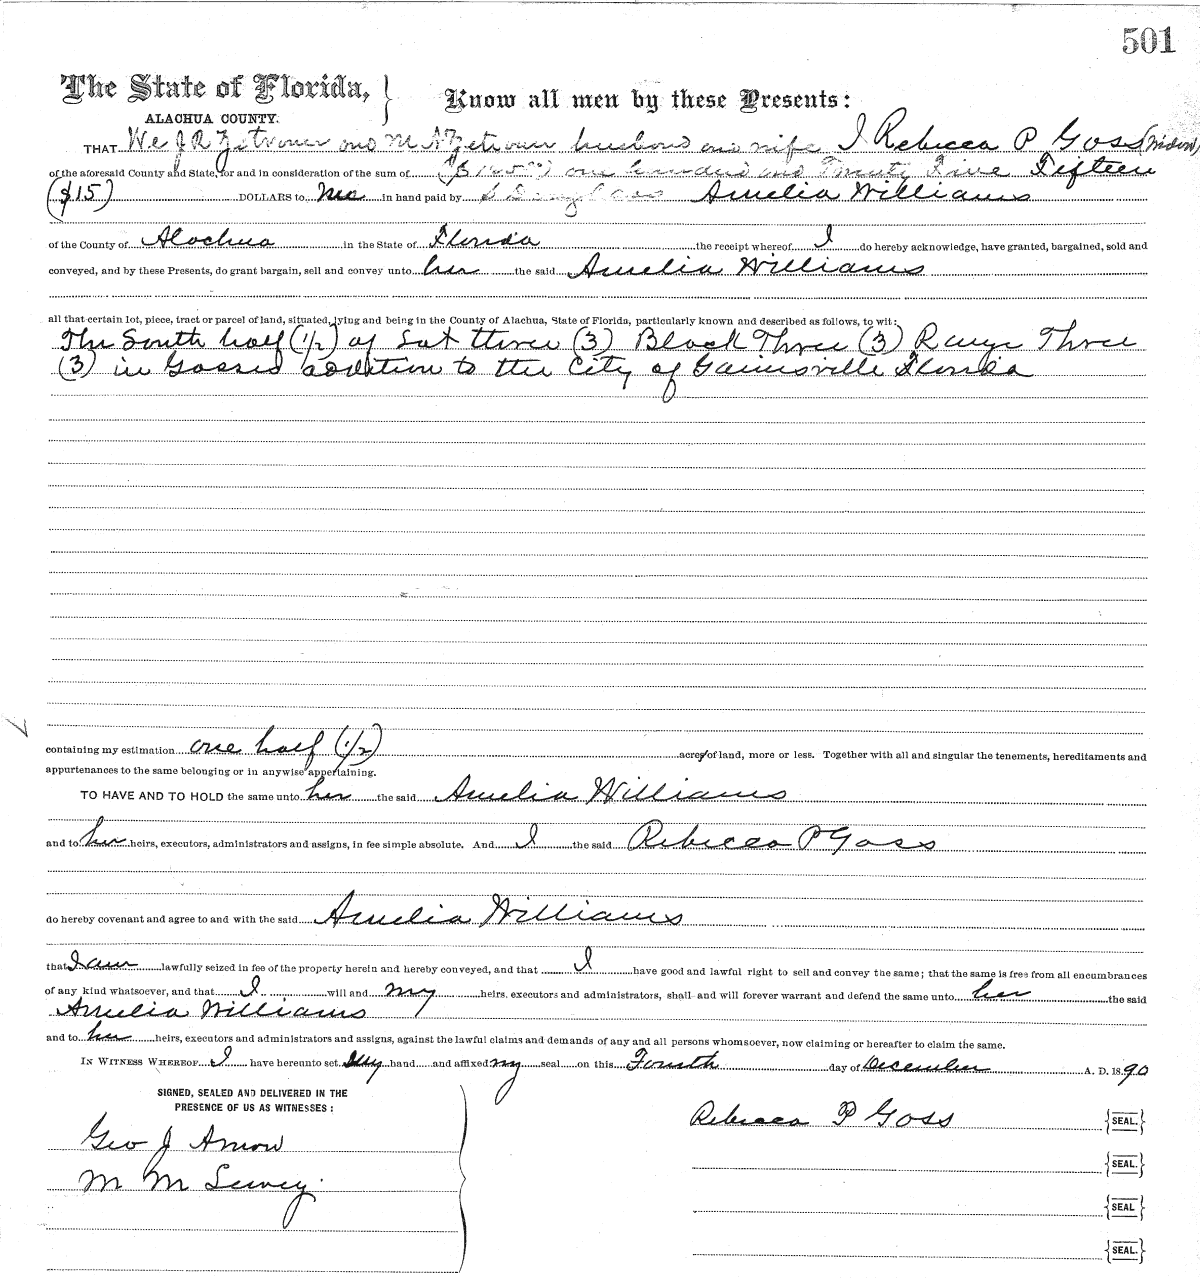 501
The State of Florida, } Know all men by these Presents:
ALACHUA COUNTY.
THAT We J R Zetrouer and M A Zetrouer husband and wife I Rebecca P Goss (widow)
of the aforesaid County and State, for and in consideration of the sum of ($125.00) one hundred and Twenty Five Fifteen
($15) DOLLARS to me in hand paid by Amelia Williams
of the County of Alachua in the State of Florida the receipt whereof I do hereby acknowledge, have granted, bargained, sold and
conveyed, and by these Presents, do grant bargain, sell and convey unto her the said Amelia Williams
all that certain lot, piece, tract or parcel of land, situated, lying and being in the County of Alachua, State of Florida, particularly known and described as follows, to wit:
The South half (1/2) of Lot three (3) Block Three (3) Range Three
(3) in Gosses addition to the City of Gainesville Florida
containing my estimation one half (1/2) acres of land, more or less. Together with all and singular the tenements, hereditaments and
appurtenances to the same belonging or in anywise appertaining.
TO HAVE AND TO HOLD the same unto her the said Amelia Williams
and to her heirs, executors, administrators and assigns, in fee simple absolute. And I the said Rebecca P Goss
do hereby covenant and agree to and with the said Amelia Williams
that I am lawfully seized in fee of the property herein and hereby conveyed, and that I have good and lawful right to sell and convey the same; that the same is free from all encumbrances
of any kind whatsoever, and that I will and my heirs, executors and administrators, shall and will forever warrant and defend the same unto her the said
Amelia Williams
and to her heirs, executors and administrators and assigns, against the lawful claims and demands of any and all persons whomsoever, now claiming or hereafter to claim the same.
IN WITNESS WHEREOF I have hereunto set my hand and affixed my seal on this Fourth day of December A. D. 1890
SIGNED, SEALED AND DELIVERED IN THE
PRESENCE OF US AS WITNESSES:
Rebecca P Goss {SEAL.}
Geo J Arrow
{SEAL.}
M M Lewey
{SEAL}
{SEAL.}